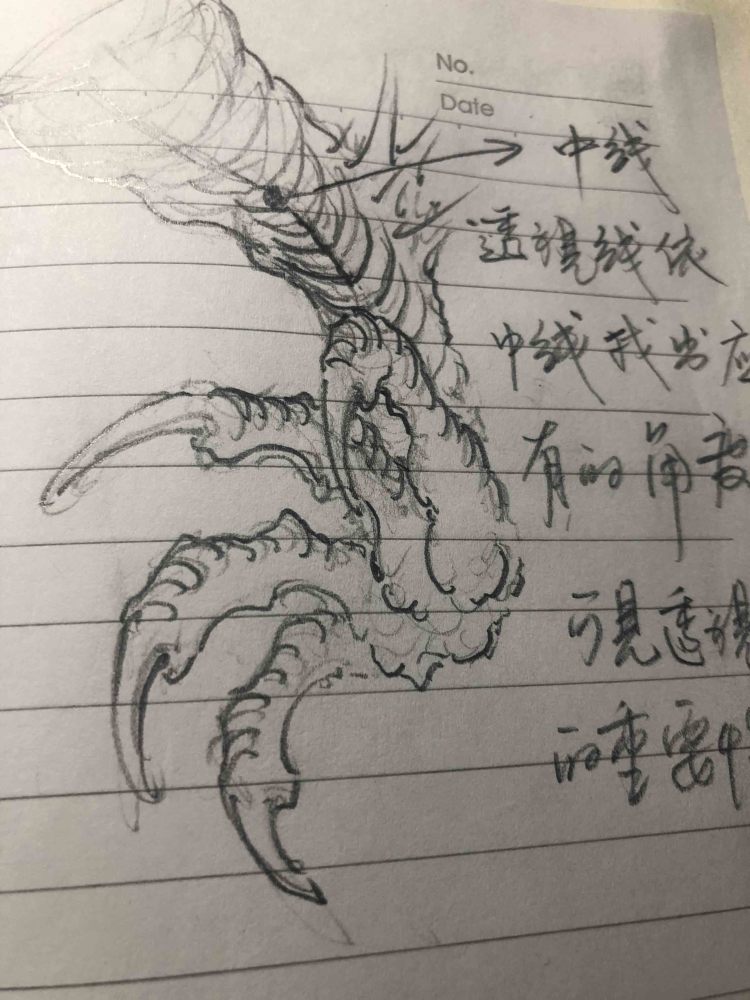 No.
Date
中线
透視线依
中线找出应
有的角度
可見透視
的重要